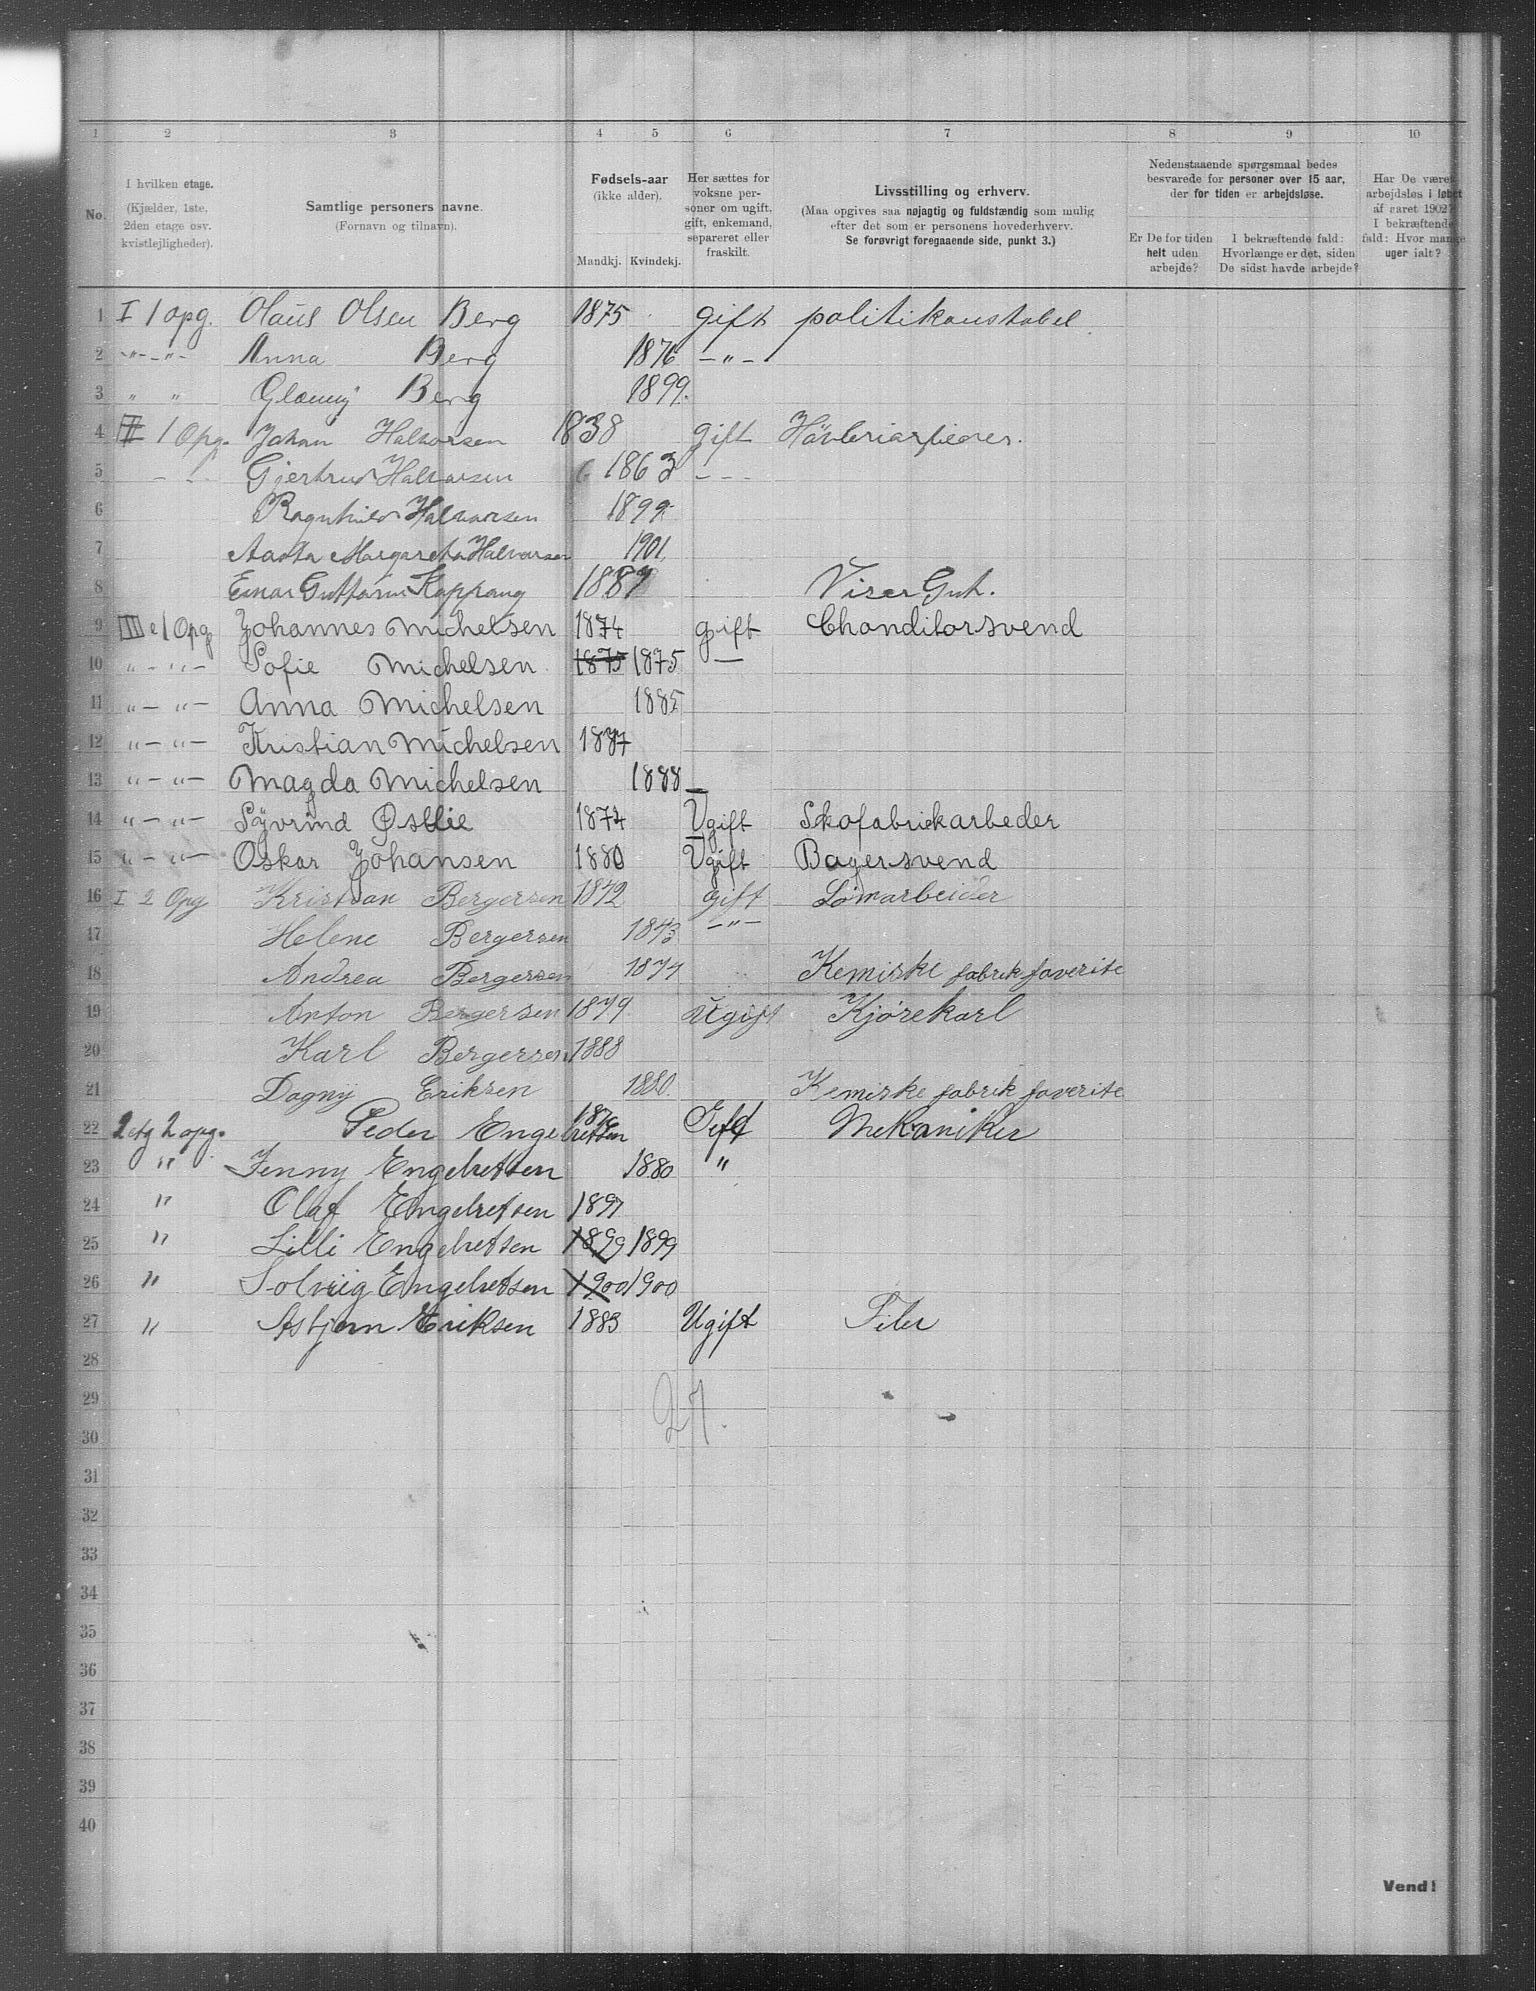 1 2 3 4 5 6 7 8 9 10
No.
I hvilken etage.
(Kjælder, 1ste,
2den etage osv.
kvistlejligheder).
Samtlige personers navne.
(Fornavn og tilnavn).
Fødsels-aar
(ikke alder).
Mandkj. Kvindekj.
Her sættes for
voksne per-
soner om ugift,
gift, enkemand,
separeret eller
fraskilt.
Livsstilling og erhverv.
(Maa opgives saa nøjagtig og fuldstændig som mulig
efter det som er personens hovederhverv.
Se forøvrigt foregaaende side, punkt 3.)
Nedenstaaende spørgsmaal bedes
besvarede for personer over 15 aar,
der for tiden er arbejdsløse.
Er De for tiden
helt uden
arbejde?
I bekræftende fald:
Hvorlænge er det, siden
De sidst havde arbejde?
Har De været
arbejdsløs i løbet
af aaret 1902?
I bekræftende
fald: Hvor mange
uger ialt?
1 I 1 opg. Olaus Olsen Berg 1875 gift politikonstabel
2 -"- -"- Anna Berg 1876 -"-
3 " " Berg 1899.
4 II 1 Opg. Johan Halvorsen 1838 gift Høvleriarbeider.
5 - - Gjertrud Halvorsen 1863 - - -
6 Ragnhild Halvorsen 1899
7 Aasta Margareta Halvorsen 1901
8 Einar Guttorm Kappang 1887 Viser Gut.
9 III e 1 Opg Johannes Michelsen 1874 gift Chonditorsvend
10 "- "- Sofie Michelsen 1875 1875 —
11 "- "- Anna Michelsen 1885
12 "- "- Kristian Michelsen 1887
13 "- "- Magda Michelsen 1888 —
14 "- "- Syvrind Østlie 1874 Ugift Skofabrikarbeder
15 "- "- Oskar Johansen 1880 Ugift Bagersvend
16 I 2 Opg Kristian Bergersen 1842 gift Lønarbeider
17 Helene Bergersen 1843 -"-
18 Andrea Bergersen 1877 Kemiske fabrik faverite
19 Anton Bergersen 1879 Ugift Kjørekarl
20 Karl Bergersen 1888
21 Dagny Eriksen 1880. Kemiske fabrik faverite
22 2 etg 2 opg. Peder Engebretsen 1876 Gift Mekaniker
23 " Jenny Engebretsen 1880 "
24 " Olaf Engebretsen 1897
25 " Lilli Engebretsen 1899 1899
26 " Solveig Engebretsen 1900 1900
27 " Asbjørn Eriksen 1883 Ugift Filer
28
29
27.
30
31
32
33
34
35
36
37
38
39
40
Vend!